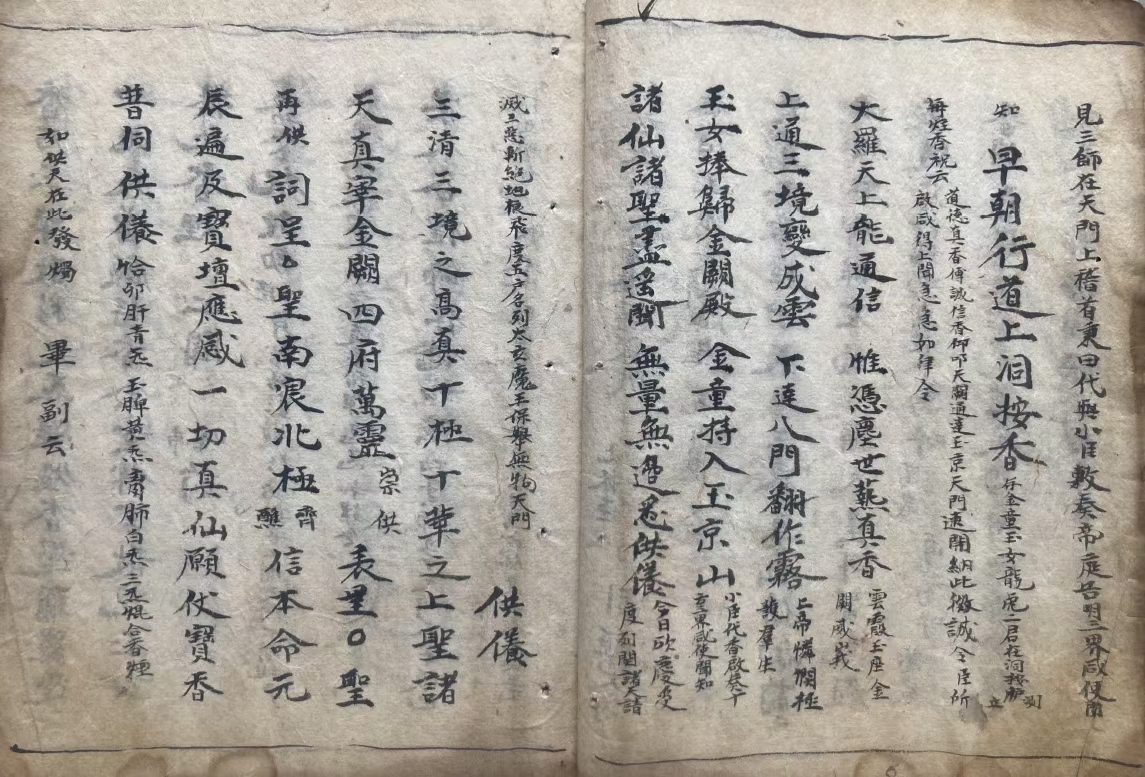 見三師在天門上稽首東曰代與小臣敷奏帝庭告明三界咸使聞
知 早朝行道上洞按香 存金童玉女龍虎二君在洞按炉立
再炷香祝云 道德真香傳誠信香仰叩天關通達玉京天門速開納此微誠今臣所
啟咸得上聞急急如律令
大羅天上能通信 惟憑塵世爇真香 雲霞玉座金
闕威峩
上通三境變成雲 下達八門翻作霧 上帝憐憫極
護羣生
玉女捧歸金闕殿 金童持入玉京山 小臣代香啟
聞知
諸仙諸聖盡遙聞 無量無邊悉供儀 今日欣慶受
度列聞諸天請
滅三惡斬絕地根飛度五戶名列太玄魔王保舉無物天門 供儀
三清三境之高真十極十華之上聖諸
天真宰金闕四府萬靈 宗供 表呈○聖
再供 詞呈。聖南宸北極 齊醮 信本命元
辰遍及寶壇應感一切真仙願仗寶香
昔同供儀 恰卯肝青炁玉脾黃炁肅肺白炁三炁混合香煙
如供天在此發燭 畢 副云